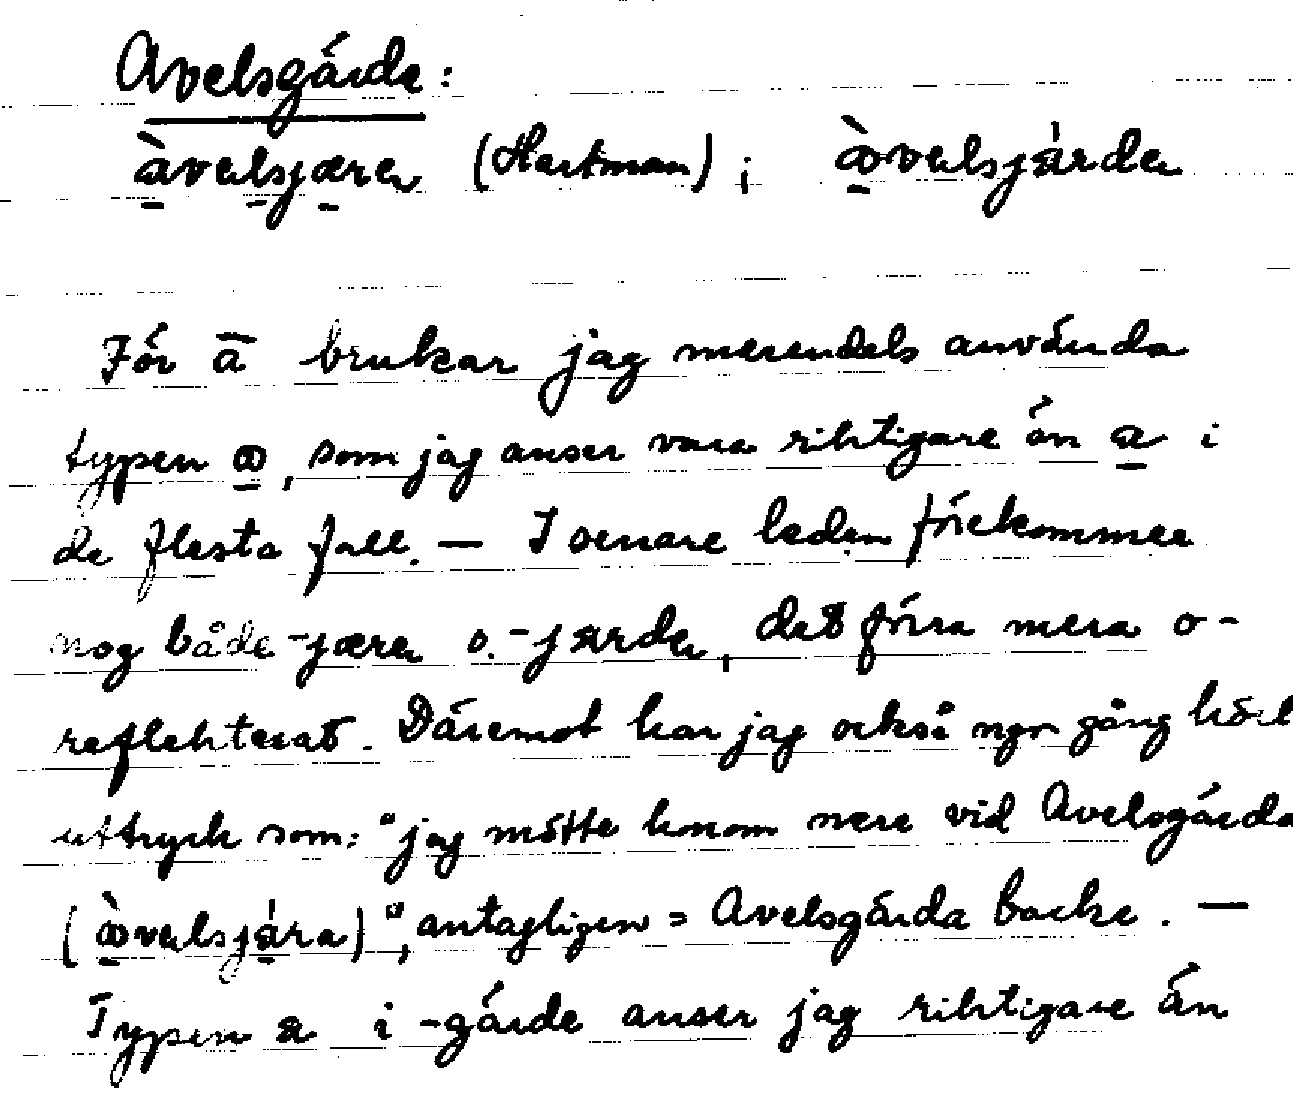 Avelsgärde:
àvelsjære (Hartman); ꝏ̀velsjärde
För ā brukar jag merendels använda
typen ꝏ, som jag anser vara riktigare än a i
de flesta fall. — I senare leden förekommer
nog både -jære o. -järde, det förra mera o-
reflekterat. Däremot har jag också ngn gång hört
uttryck som: "jag mötte honom nere vid Avelsgärda
(ꝏ̀velsjära)", antagligen = Avelsgärda backe. —
Typen æ i -gärde anser jag riktigare än